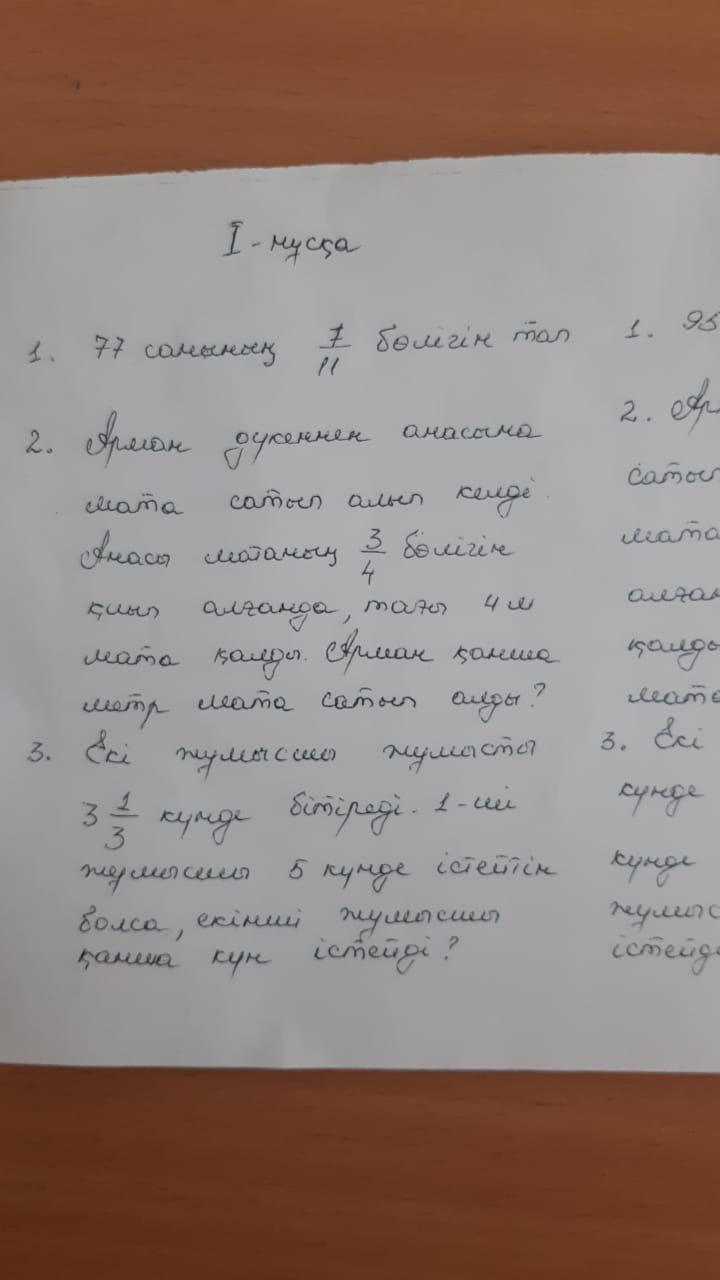 I - нұсқа
1. 77 санының 7/11 бөлігін тап
2. Арман дүкеннен анасына
мата сатып алып келді.
Анасы матаның 3/4 бөлігін
қиып алғанда, тағы 4 м
мата қалды. Арман қанша
метр мата сатып алды?
3. Екі жұмысшы жұмысты
3 1/3 күнде бітіреді. 1-ші
жұмысшы 5 күнде істейтін
болса, екінші жұмысшы
қанша күн істейді?
1. 95
2. Ар
сатып
мата
алған
қалды
мата
3. Екі
күнде
күнде
жұмыс
істейді